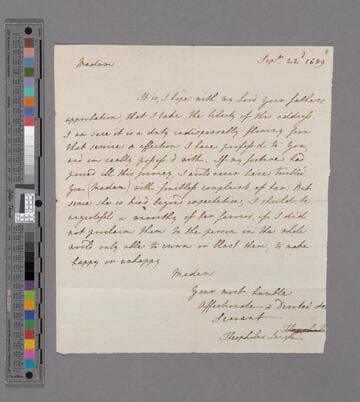 Septr. 22d 1689
Madam
It is, I hope with my Lord your fathers
approbation, that I take the liberty of this address.
I am sure it is a duty indispensably flowing from
that service & affection I have profess'd to you
and am really possess'd with. If my fortune had
proved ill this journey, I would never have troubled
you (Madam) with fruitless complaint of her. But
since she is kind beyond expectation, I should be
ungrateful & unworthy of her favours, if I did not
proclaim them to the person in the whole
world only able to crown or blast them, to make
happy or unhappy
Madam
Your most humble
affectionate & Devoted
Servant
Theophilus Leigh